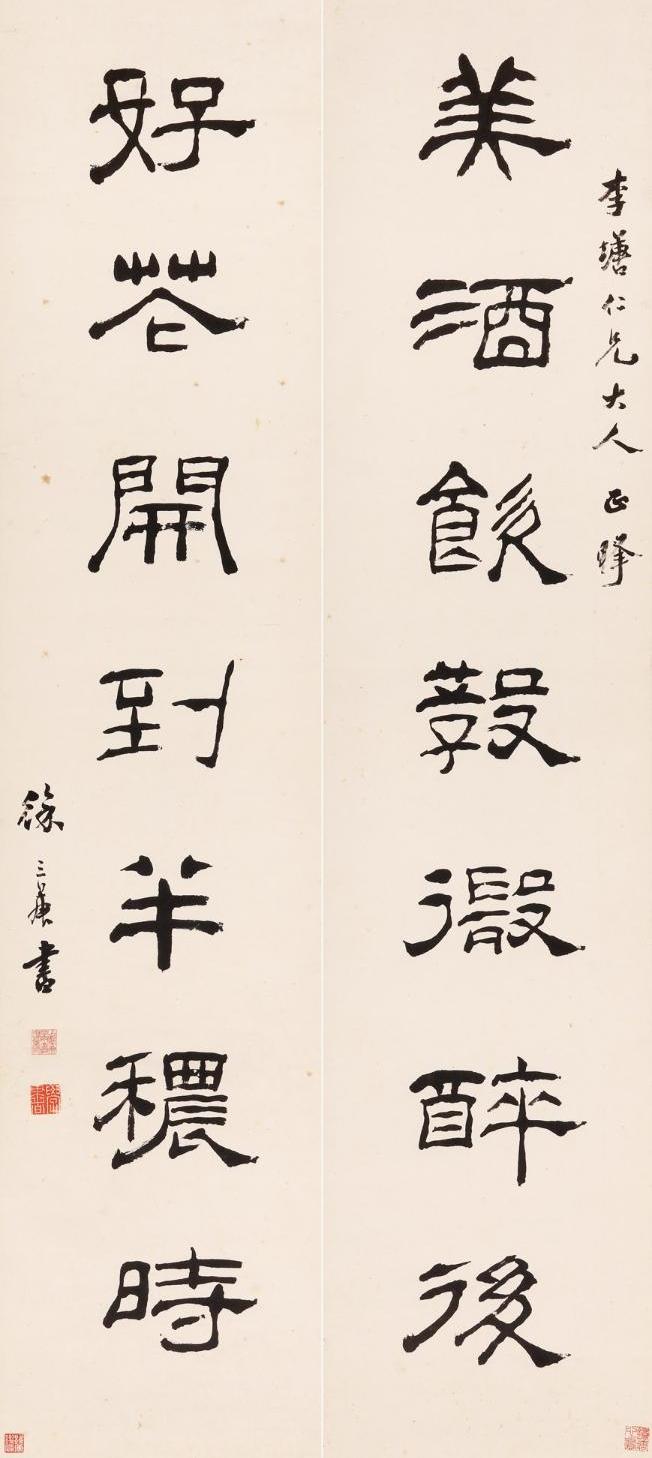 李塘仁兄大人正腕
美酒飲教微醉後
好花開到半穠時
徐三庚書